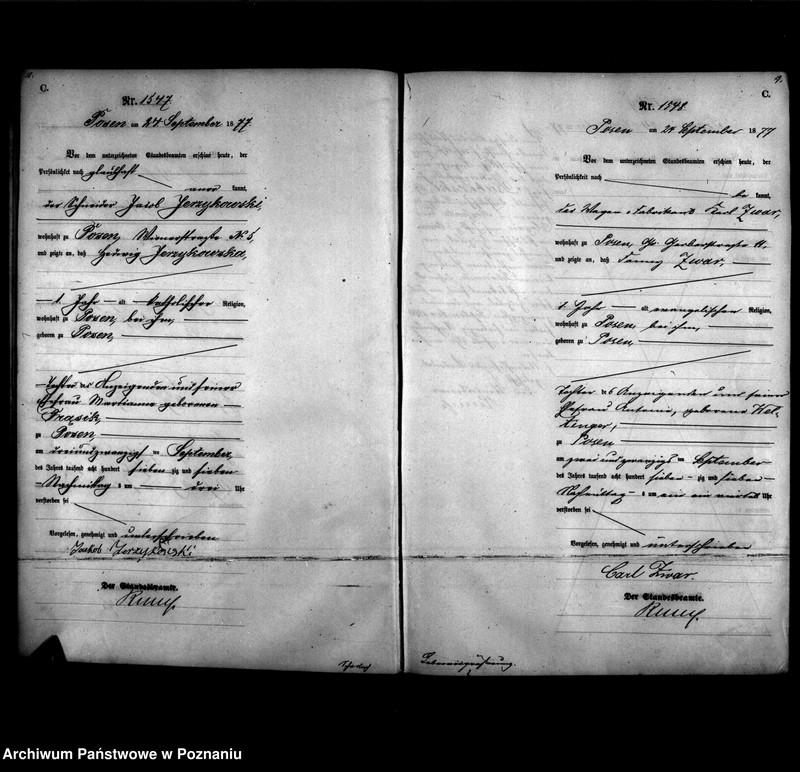 C.
Nr. 1547.
Posen am 24 September 1877
Vor dem unterzeichneten Standesbeamten erschien heute, der
Persönlichkeit nach glaubhaft
kannt,
der Schneider Jacob Jerzykowski,
wohnhaft zu Posen, Wienerstraße No 5,
und zeigte an, daß Hedwig Jerzykowska,
1 Jahr alt katholischer Religion,
wohnhaft zu Posen, bei ihm,
geboren zu Posen,
Tochter des Anzeigenden und seiner
Ehefrau Marianna geborenen
Frasik,
zu Posen
am dreiundzwanzigsten September,
des Jahres tausend acht hundert sieben zig und sieben
Nachmittag um drei Uhr
verstorben sei
Vorgelesen, genehmigt und unterschrieben
Jackob Jerzykowski
Der Standesbeamte.
9.
C.
Nr. 1548.
Posen am 24 September 1877
Vor dem unterzeichneten Standesbeamten erschien heute, der
Persönlichkeit nach
be kannt,
der Wagen-Fabrikant Karl Zwar,
wohnhaft zu Posen, Gr. Gerberstraße
und zeigte an, daß Fanny Zwar,
1 Jahr alt evangelischen Religion,
wohnhaft zu Posen, bei ihm,
geboren zu Posen,
Tochter des Anzeigenden und seiner
Ehefrau Antonie, geborene
zu Posen
am zwei und zwanzigsten September
des Jahres tausend acht hundert sieben zig und sieben
Nachmittag um ein ein viertel Uhr
verstorben sei
Vorgelesen, genehmigt und unterschrieben
Carl Zwar.
Der Standesbeamte.
Archiwum Państwowe w Poznaniu